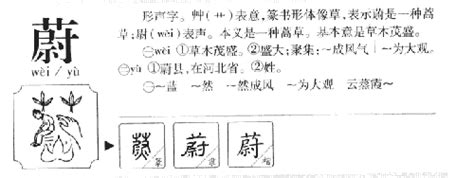 蔚
wèi / yù
形声字。艸(艹)表意,篆书形体像草,表示蔚是一种蒿
草;尉(wèi)表声。本义是一种蒿草。基本意是草木茂盛。
㊀wèi ①草木茂盛。②盛大;聚集:~成风气|~为大观。
㊁yù ①蔚县,在河北省。②姓。
㊀~蓝 ~然 ~然成风 ~为大观 云蒸霞~
蔚 蔚 蔚
篆 隶 楷